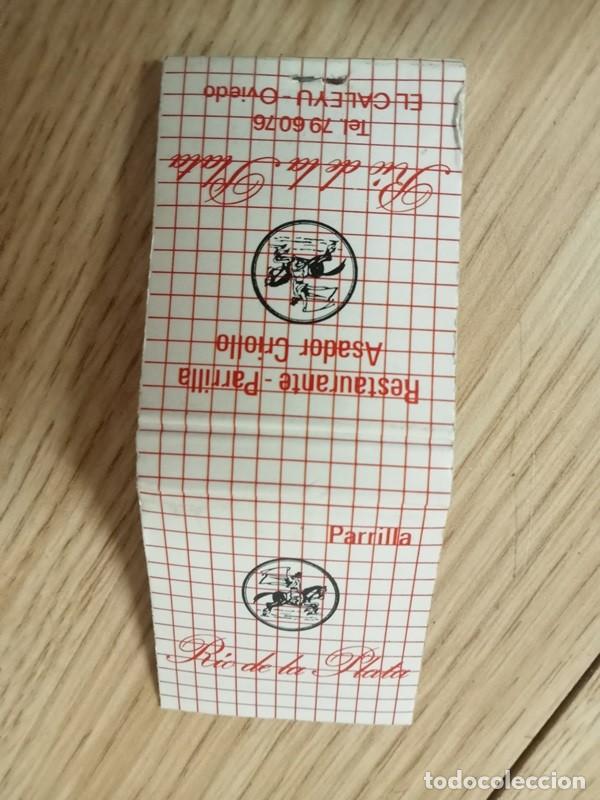 Restaurante - Parrilla
Asador Criollo
Río de la Plata
Tel. 79 60 76
EL CALEYU - Oviedo
Parrilla
Río de la Plata
todocoleccion.net